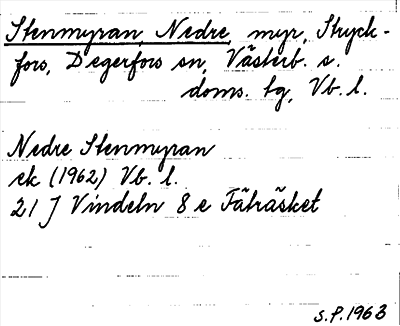 Stenmyran, Nedre, myr, Stryck-
fors, Degerfors sn, Västerb. s.
doms. tg, Vb. l.
Nedre Stenmyran
ek (1962) Vb. l.
21 J Vindeln 8 e Fäträsket
S.P. 1963